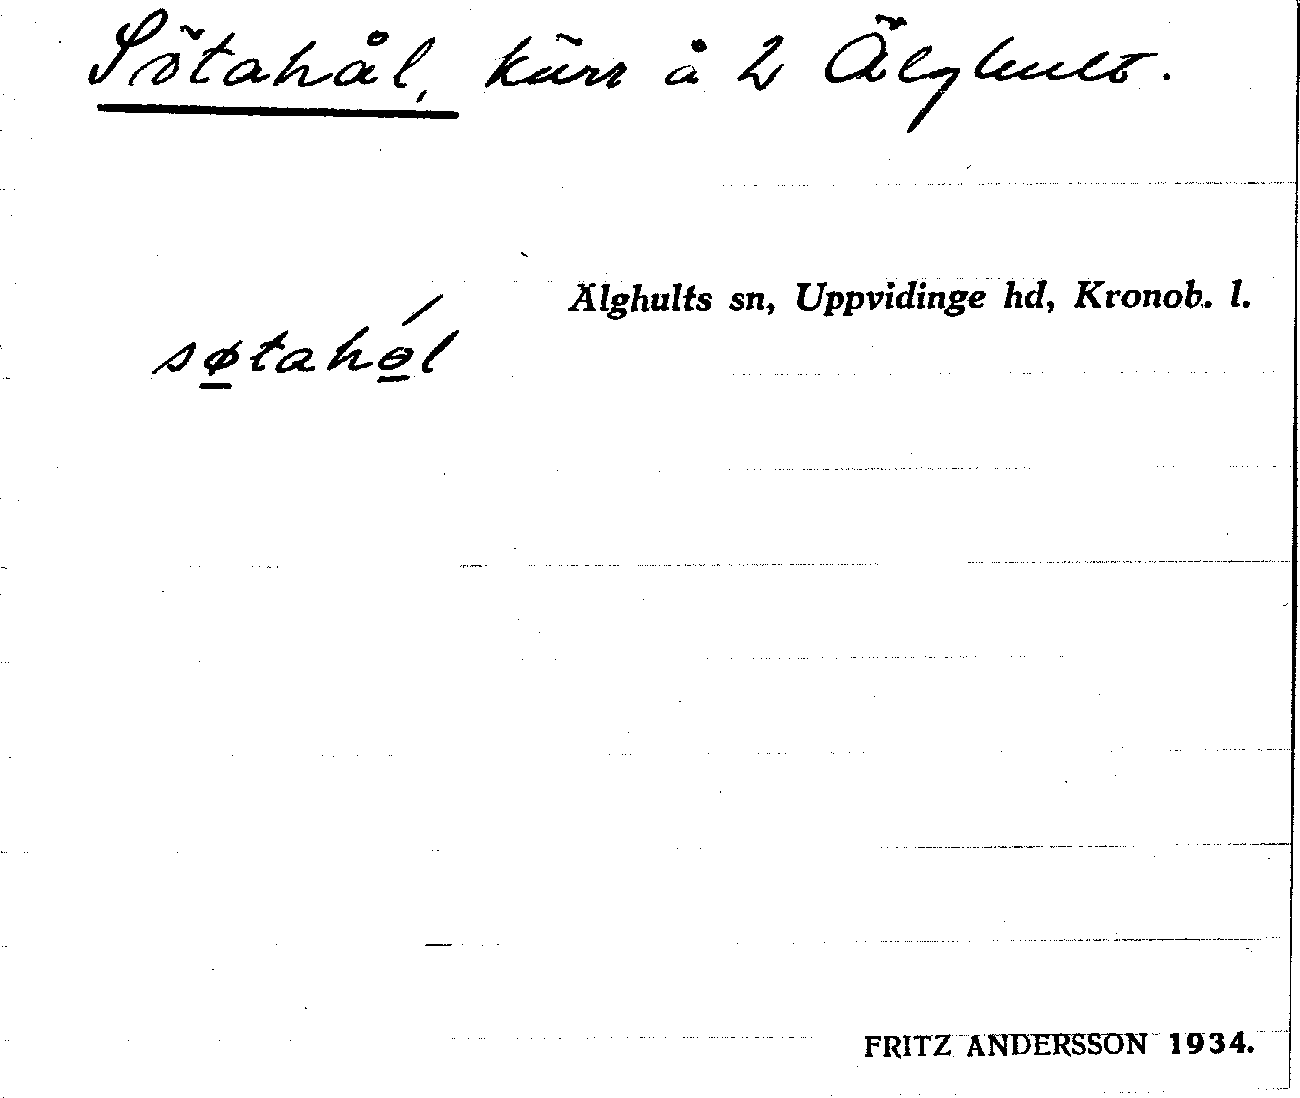 Sötahål, kärr å 2 Älghult.
Älghults sn, Uppvidinge hd, Kronob. l.
søtahɵ́l
FRITZ ANDERSSON 1934.